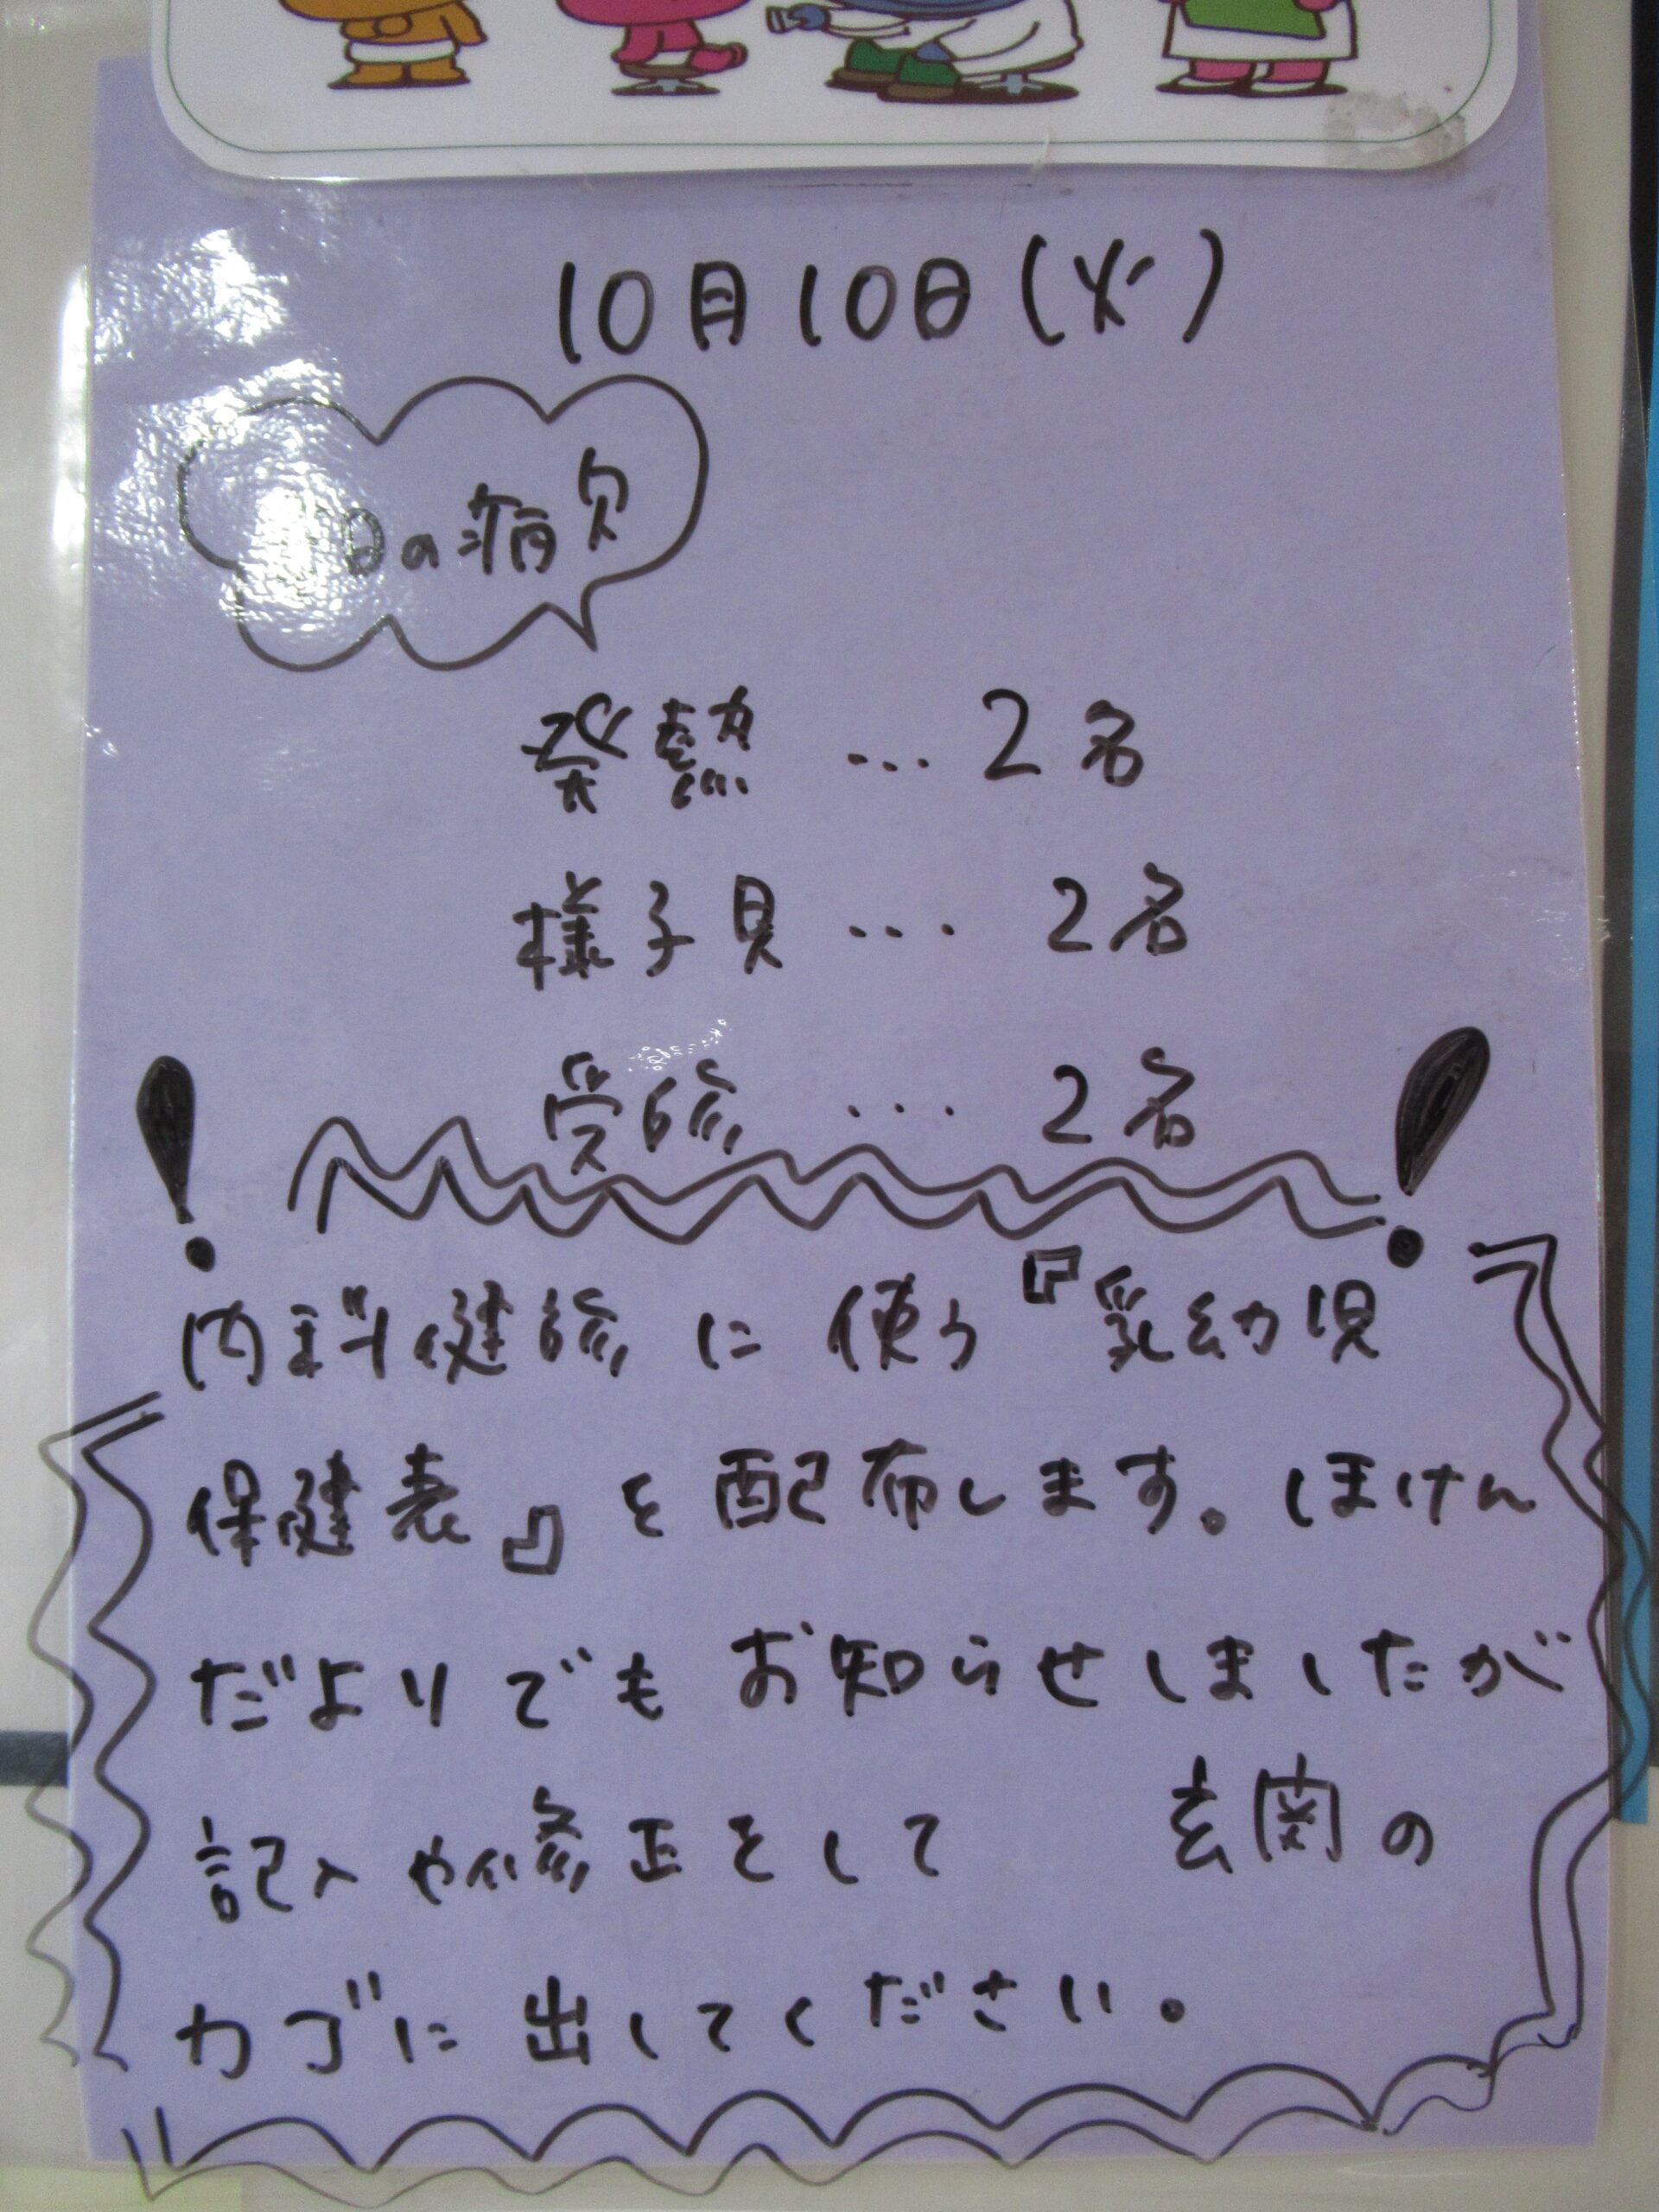 10月10日(火)
日の病欠
発熱 … 2名
様子見 … 2名
受診 … 2名
内科健診に使う『乳幼児
保健表』を配布します。ほけん
だよりでもお知らせしましたが
記入や修正をして 玄関の
カゴに出してください。